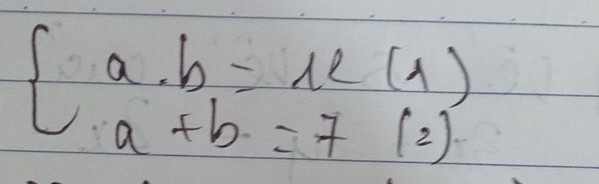 a.b = 12 (1)
a + b = 7 (2)